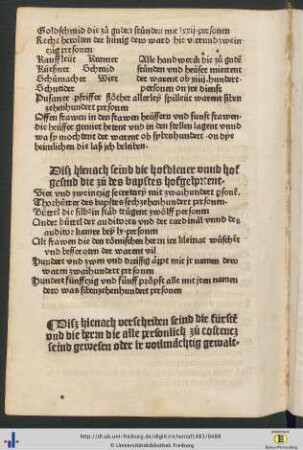 Goldschmid die zů gaden stůnden mit lxxij·personen
Recht herolten der künig dero ward hie v·vnd zwein
tzig personen
Kaufleüt Kremer Alle handwerck die zů gadē
Kürßner Schmid stůnden vnd heüser mietent
Schůmacher Wirt der warent ob xiiij·hundert
Schneider personen on jre dienst
Pusauner·pfeiffer flöther allerley spilleüt warent siben
zehenhundert personen
Offen frawen in den frawen heüsern vnd sunst frawen
die heüsser gemiet hetent vnd in den stellen lagent vnnd
wa sy mochtent der warent ob sybenhundert·on dye
heimlichen die laß jch beleiben·
Disz hienach seind die hofdiener vnnd hof
gesind die zů des bapstes hofgehörent·
Vier vnd zweintzig secretary mit zwaihundert psonē·
Thorhütter des bapstes sechtzehenhundert personen·
Büttel die silbrin stäb trůgent zwölff personen
Ander büttel der auditores vnd der cardinäl vnnd des
auditor kamre bey lx·personen
Alt frawen die den römischen herrn ire kleinat wůschēt
vnd besserten der warent vil
Hundert vnd zwen vnd dreissig äppt mit jr namen dero
waren zwaihundert personen
Hundert fünfftzig vnd fünff pröpst alle mit jren namen
dero was sibentzehenhundert personen
Disz hienach verschriben seind die fürstē
vnd die herrn die alle personlich zů costentz
seind gewesen oder ir vollmächtig gewalt·
http://dl.ub.uni-freiburg.de/diglit/richental1483/0488
© Universitätsbibliothek Freiburg